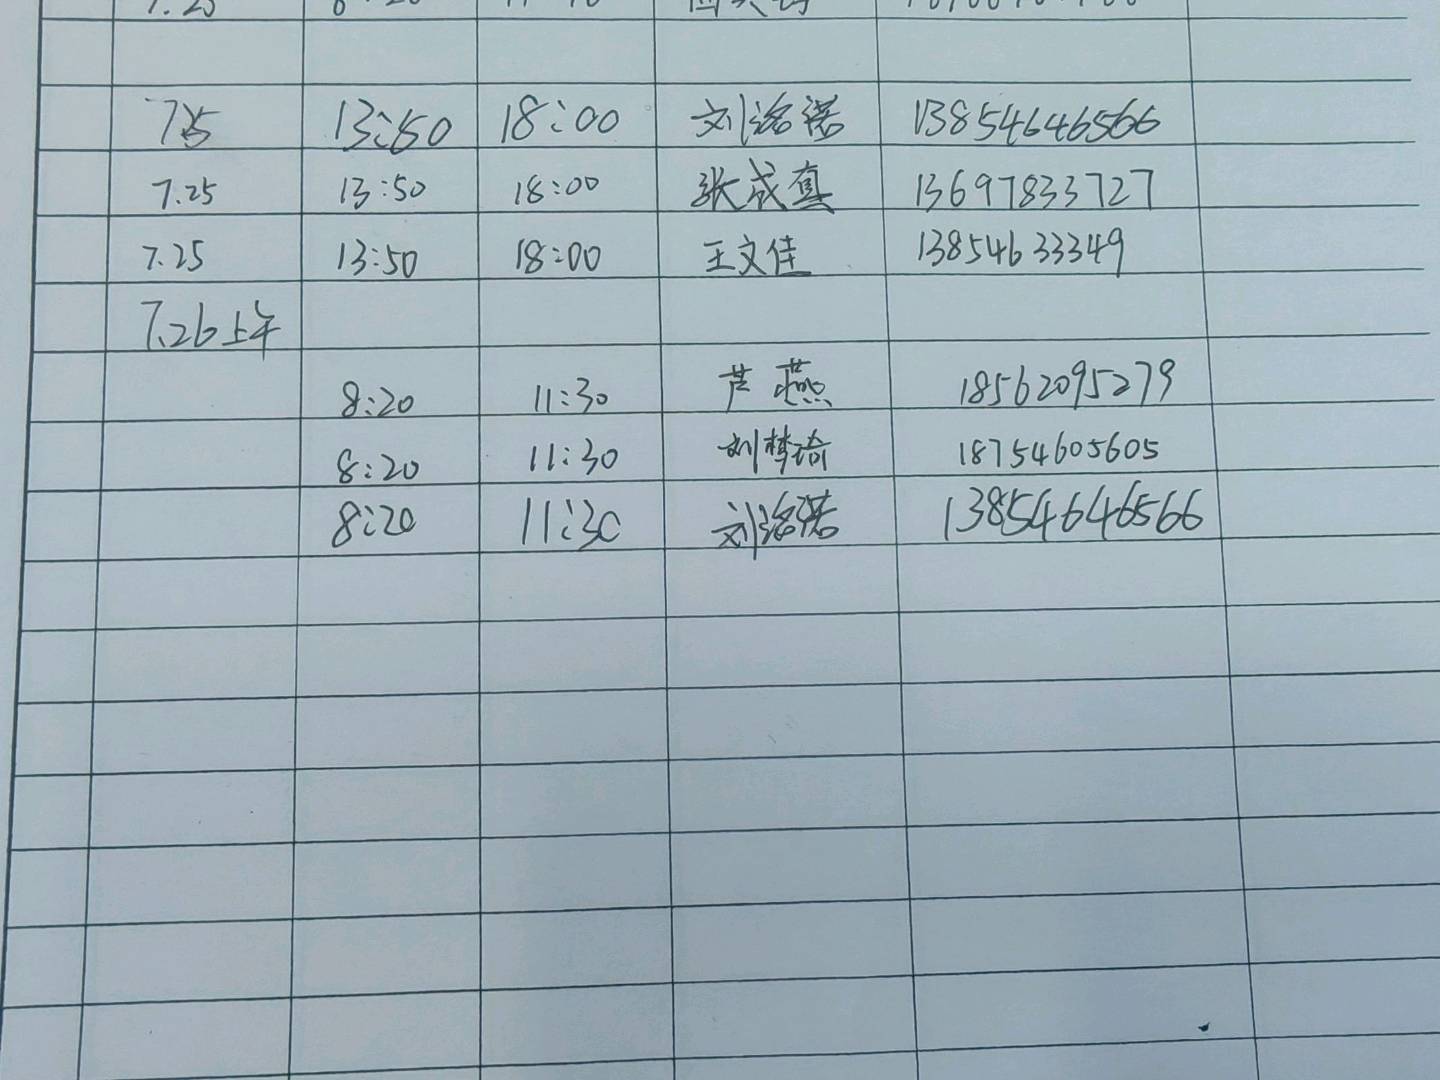 7.25 13:50 18:00 刘洺诺 13854646566
7.25 13:50 18:00 张成真 13697833727
7.25 13:50 18:00 王文佳 13854633349
7.26上午
8:20 11:30 芦燕 18562095279
8:20 11:30 刘梦琦 18754605605
8:20 11:30 刘洺诺 13854646566